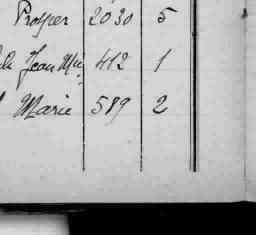 Prosper 2030 5
Jean Mie 412 1
Marie 589 2